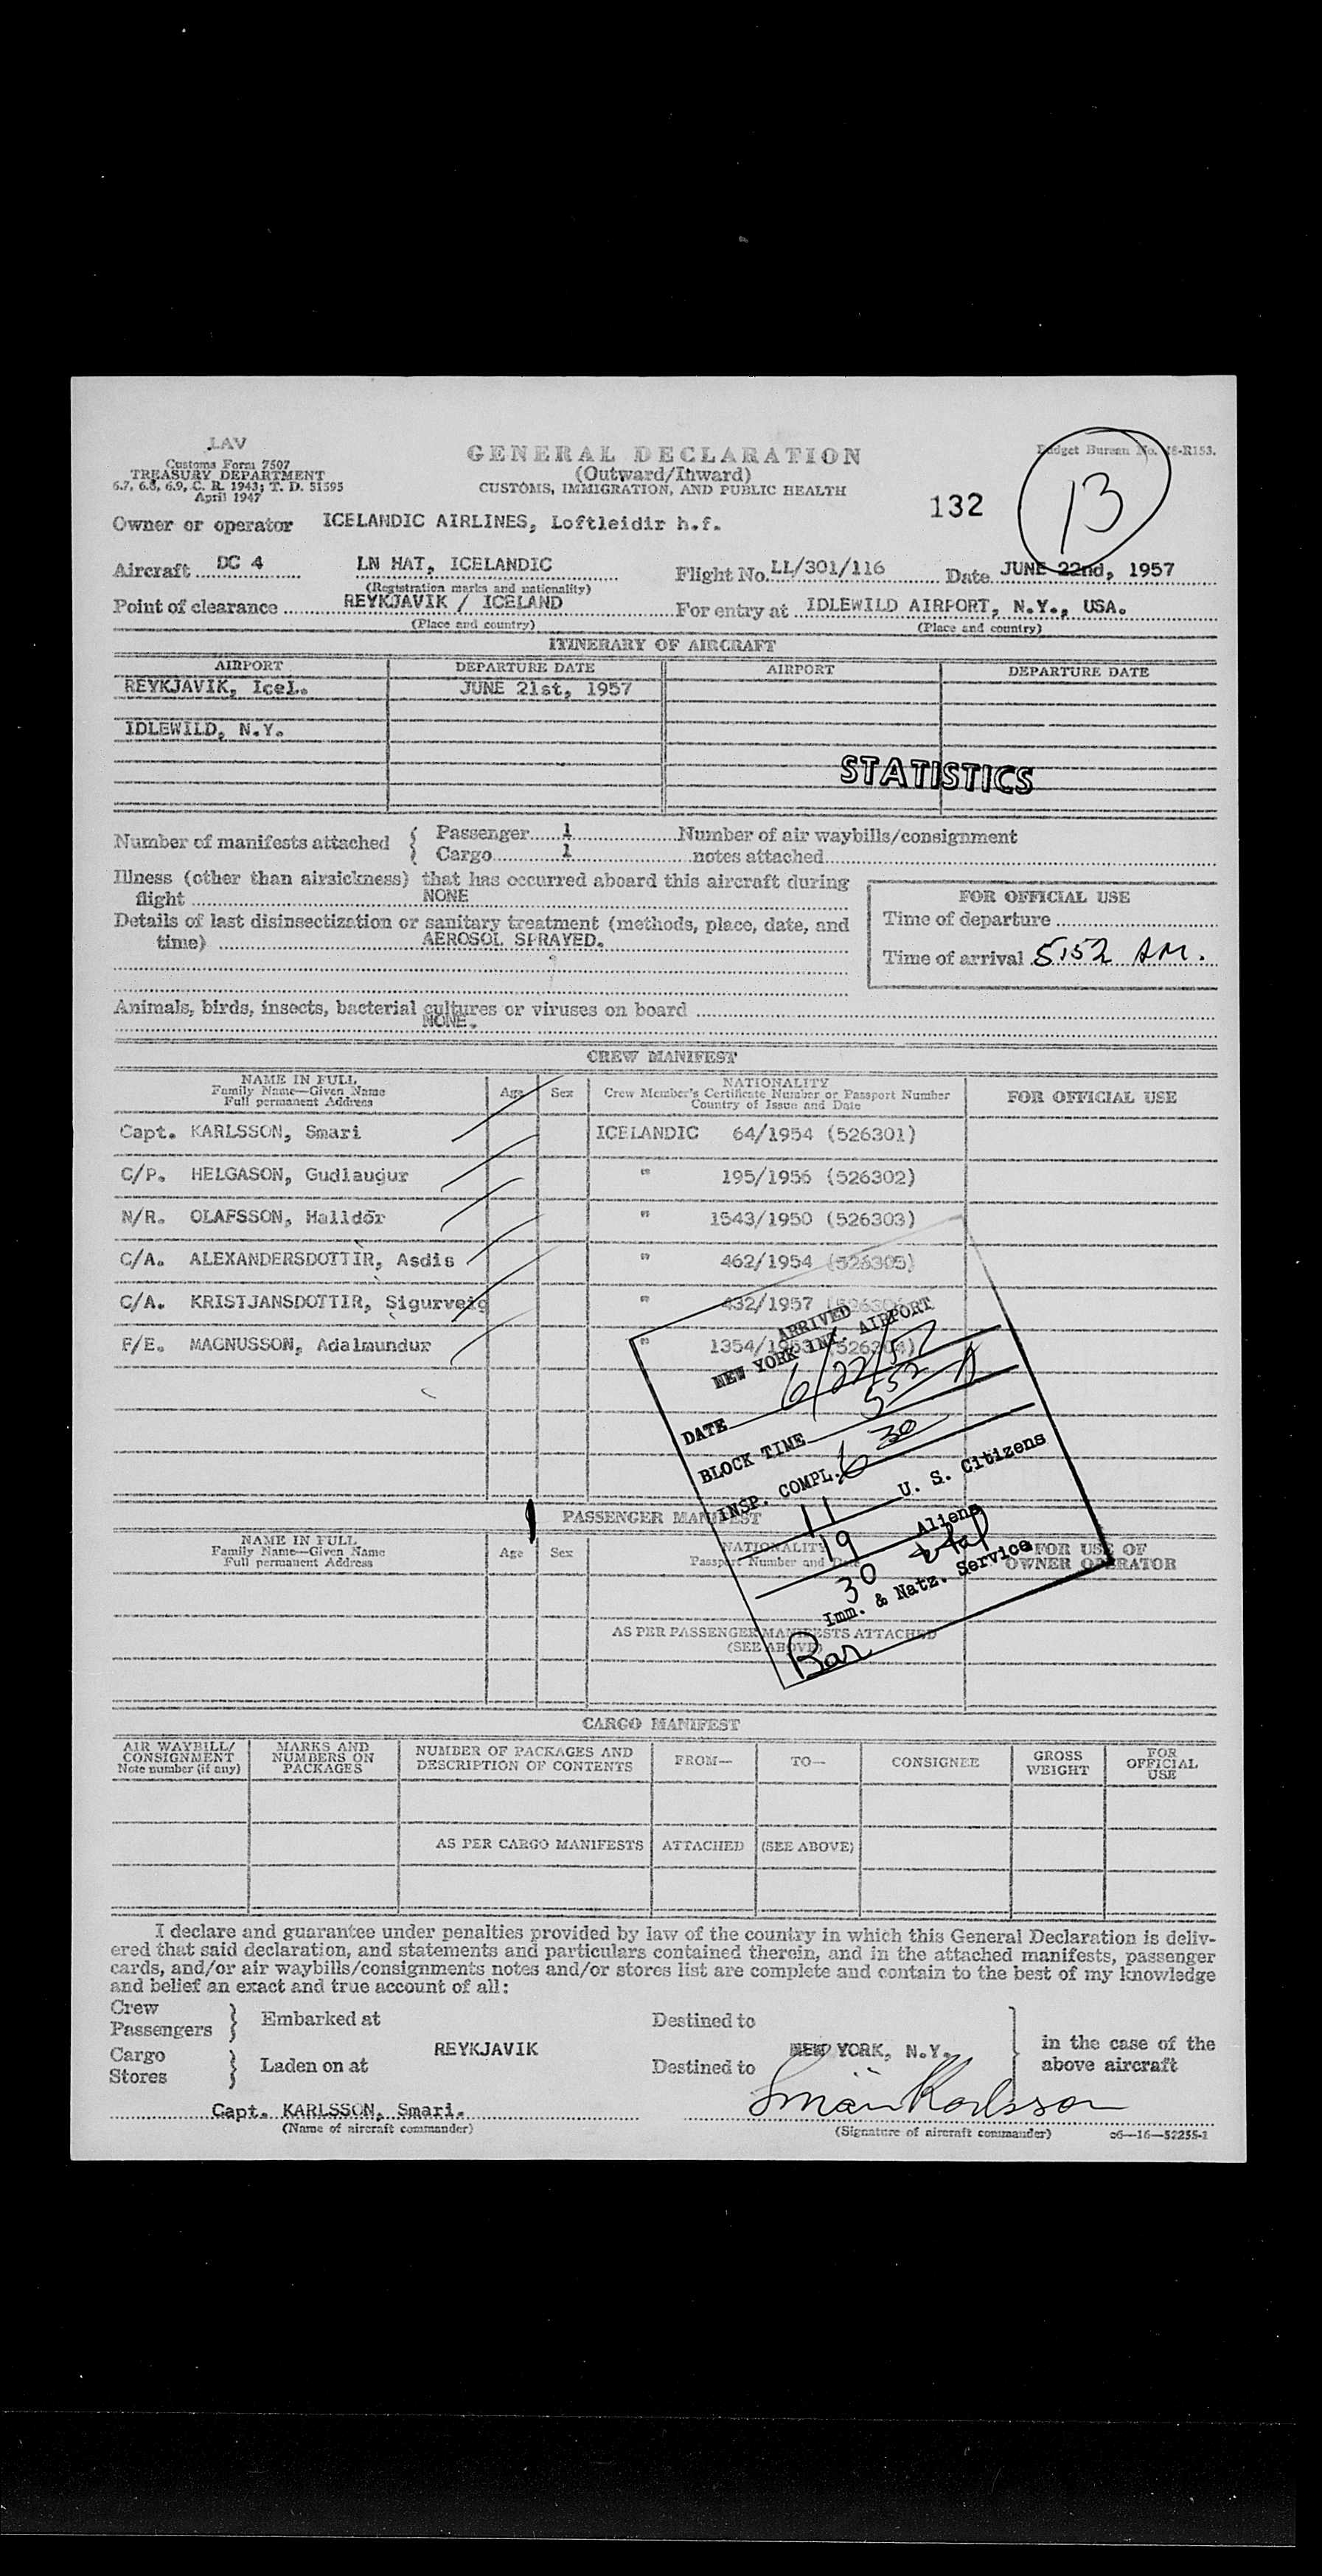 LAV
Customs Form 7507
TREASURY DEPARTMENT
6.7, 6.8, 6.9, C. R. 1943; T. D. 51595
April 1947
GENERAL DECLARATION
(Outward/Inward)
CUSTOMS, IMMIGRATION, AND PUBLIC HEALTH
Budget Bureau No. 48-R153.
132
13
Owner or operator ICELANDIC AIRLINES, Loftleidir h.f.
Aircraft DC 4 LN HAT, ICELANDIC Flight No. LL/301/116 Date JUNE 22nd, 1957
(Registration marks and nationality)
Point of clearance REYKJAVIK / ICELAND For entry at IDLEWILD AIRPORT, N.Y., USA.
(Place and country) (Place and country)
ITINERARY OF AIRCRAFT
AIRPORT DEPARTURE DATE AIRPORT DEPARTURE DATE
REYKJAVIK, Icel. JUNE 21st, 1957
IDLEWILD, N.Y.
STATISTICS
Number of manifests attached { Passenger 1 Number of air waybills/consignment
Cargo 1 notes attached
Illness (other than airsickness) that has occurred aboard this aircraft during
flight NONE
Details of last disinsectization or sanitary treatment (methods, place, date, and
time) AEROSOL SPRAYED.
FOR OFFICIAL USE
Time of departure
Time of arrival 5:52 AM.
Animals, birds, insects, bacterial cultures or viruses on board
NONE.
CREW MANIFEST
NAME IN FULL
Family Name—Given Name
Full permanent Address
Age Sex
NATIONALITY
Crew Member's Certificate Number or Passport Number
Country of Issue and Date
FOR OFFICIAL USE
Capt. KARLSSON, Smari ICELANDIC 64/1954 (526301)
C/P. HELGASON, Gudlaugur " 195/1956 (526302)
N/R. OLAFSSON, Halldór " 1543/1950 (526303)
C/A. ALEXANDERSDOTTIR, Asdis " 462/1954 (526305)
C/A. KRISTJANSDOTTIR, Sigurveig " 432/1957
F/E. MAGNUSSON, Adalmundur " 1354/1953 (526304)
ARRIVED
NEW YORK INT. AIRPORT
DATE 6/22/57
BLOCK TIME 552 A
INSP. COMPL. 6 30
11 U. S. Citizens
19 Aliens
30 total
Imm. & Natz. Service
PASSENGER MANIFEST
NAME IN FULL
Family Name—Given Name
Full permanent Address
Age Sex
NATIONALITY
Passport Number and Date
FOR USE OF
OWNER OPERATOR
AS PER PASSENGER MANIFESTS ATTACHED
(SEE ABOVE)
CARGO MANIFEST
AIR WAYBILL/
CONSIGNMENT
Note number (if any)
MARKS AND
NUMBERS ON
PACKAGES
NUMBER OF PACKAGES AND
DESCRIPTION OF CONTENTS
FROM— TO— CONSIGNEE
GROSS
WEIGHT
FOR
OFFICIAL
USE
AS PER CARGO MANIFESTS ATTACHED (SEE ABOVE)
I declare and guarantee under penalties provided by law of the country in which this General Declaration is deliv-
ered that said declaration, and statements and particulars contained therein, and in the attached manifests, passenger
cards, and/or air waybills/consignments notes and/or stores list are complete and contain to the best of my knowledge
and belief an exact and true account of all:
Crew
Passengers } Embarked at Destined to
REYKJAVIK NEW YORK, N.Y.
Cargo
Stores } Laden on at Destined to
in the case of the
above aircraft
Capt. KARLSSON, Smari. Smári Karlsson
(Name of aircraft commander) (Signature of aircraft commander) c6—16—52255-1